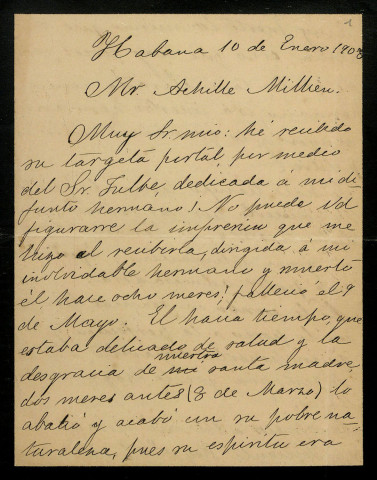 1
Habana 10 de Enero 190
Mr. Achille Millien.
Muy Sr. mio: hé recibido
su targeta postal, por medio
del Sr. dedicada á mi di-
funto hermano! No puede Vd
figurarse la impresion que me
hizo al recibirla, dirigida á mi
inolvidable hermano y muerto
él hace ocho meses! falleció el 9
de Mayo. El hacia tiempo, que
estaba delicado de salud y la
desgracia de nuestra santa madre,
dos meres antes (8 de Marzo) lo
abatió y acabó con su pobre na-
turaleza, pues su espiritu era